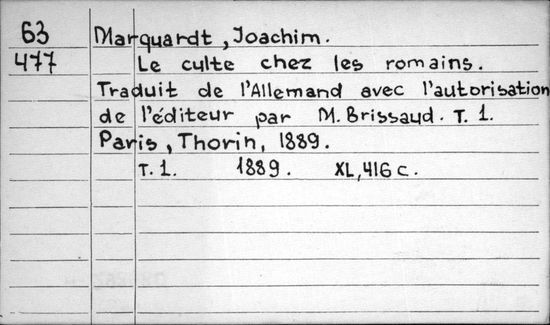 63 Marquardt, Joachim.
477 Le culte chez les romains.
Traduit de l'Allemand avec l'autorisation
de l'éditeur par M. Brissaud. T. 1.
Paris, Thorin, 1889.
T. 1. 1889. XL, 416 c.